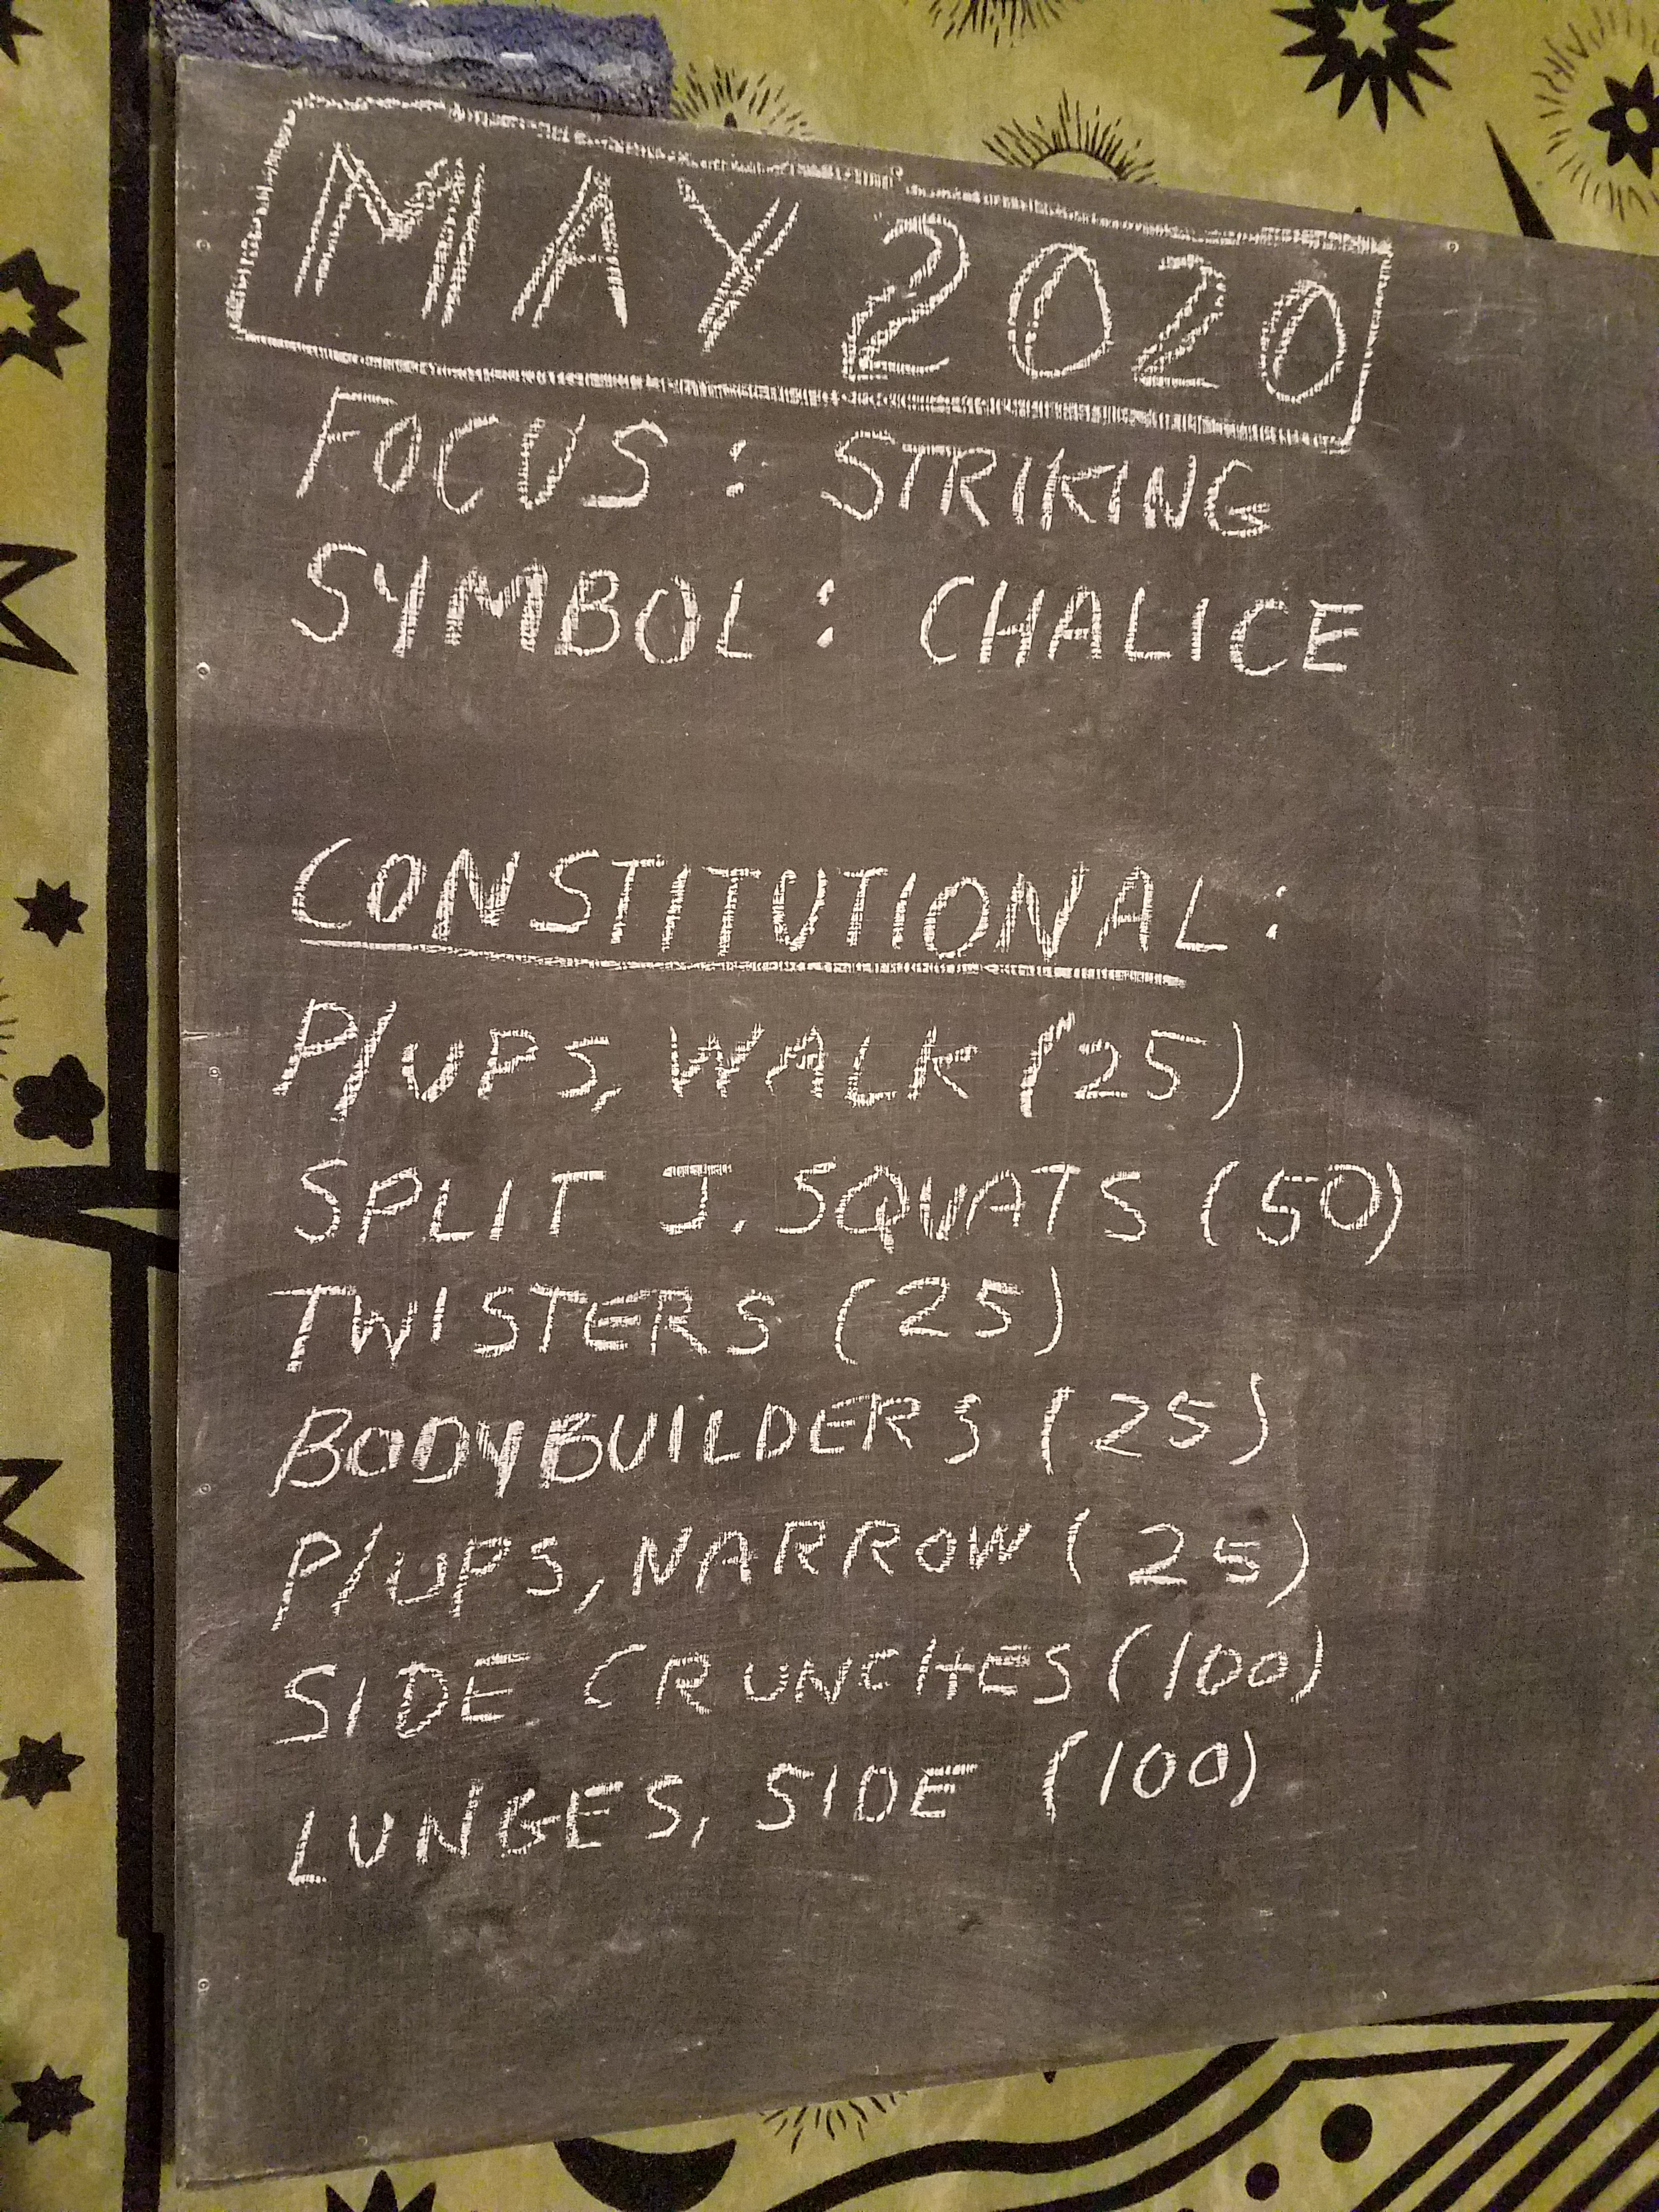 MAY 2020
FOCUS: STRIKING
SYMBOL: CHALICE
CONSTITUTIONAL:
P/UPS, WALK (25)
SPLIT J. SQUATS (50)
TWISTERS (25)
BODYBUILDERS (25)
P/UPS, NARROW (25)
SIDE CRUNCHES (100)
LUNGES, SIDE (100)